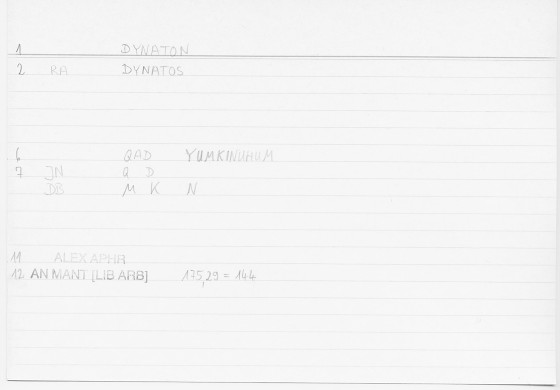 1 DYNATON
2 RA DYNATOS
6 QAD YUMKINUHUM
7 JN Q D
DB M K N
11 ALEX APHR
12 AN MANT [LIB ARB] 175,29 = 144